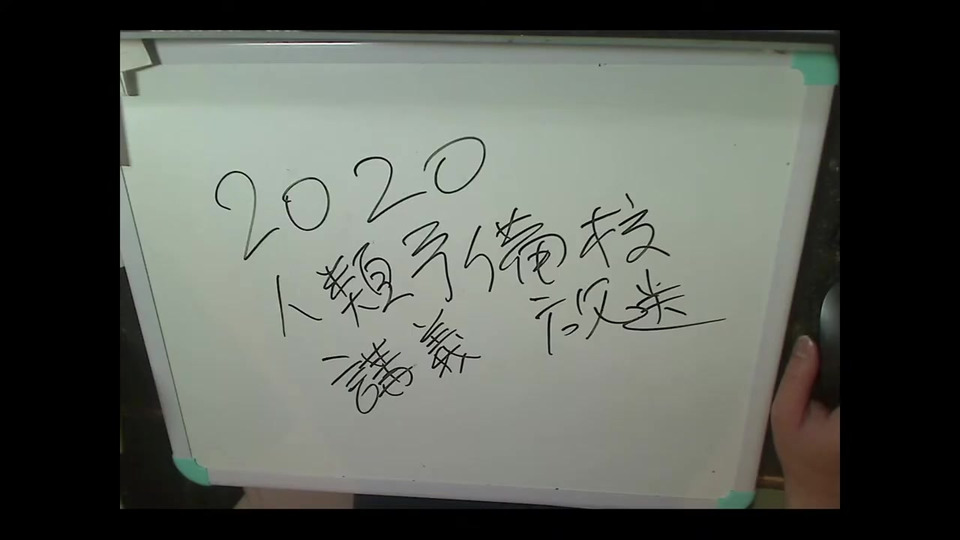 2020
人類予備校
講義 放送